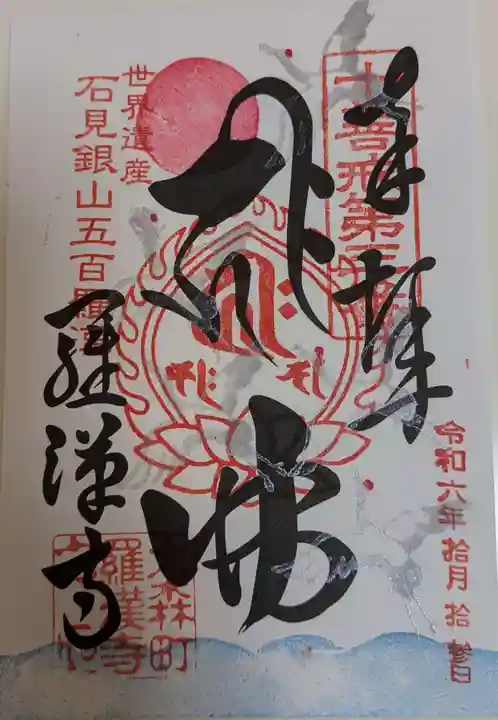 奉拝
十善戒第
令和六年拾月拾參日
佛
世界遺産
石見銀山五百羅漢
羅漢寺
森町
羅漢寺